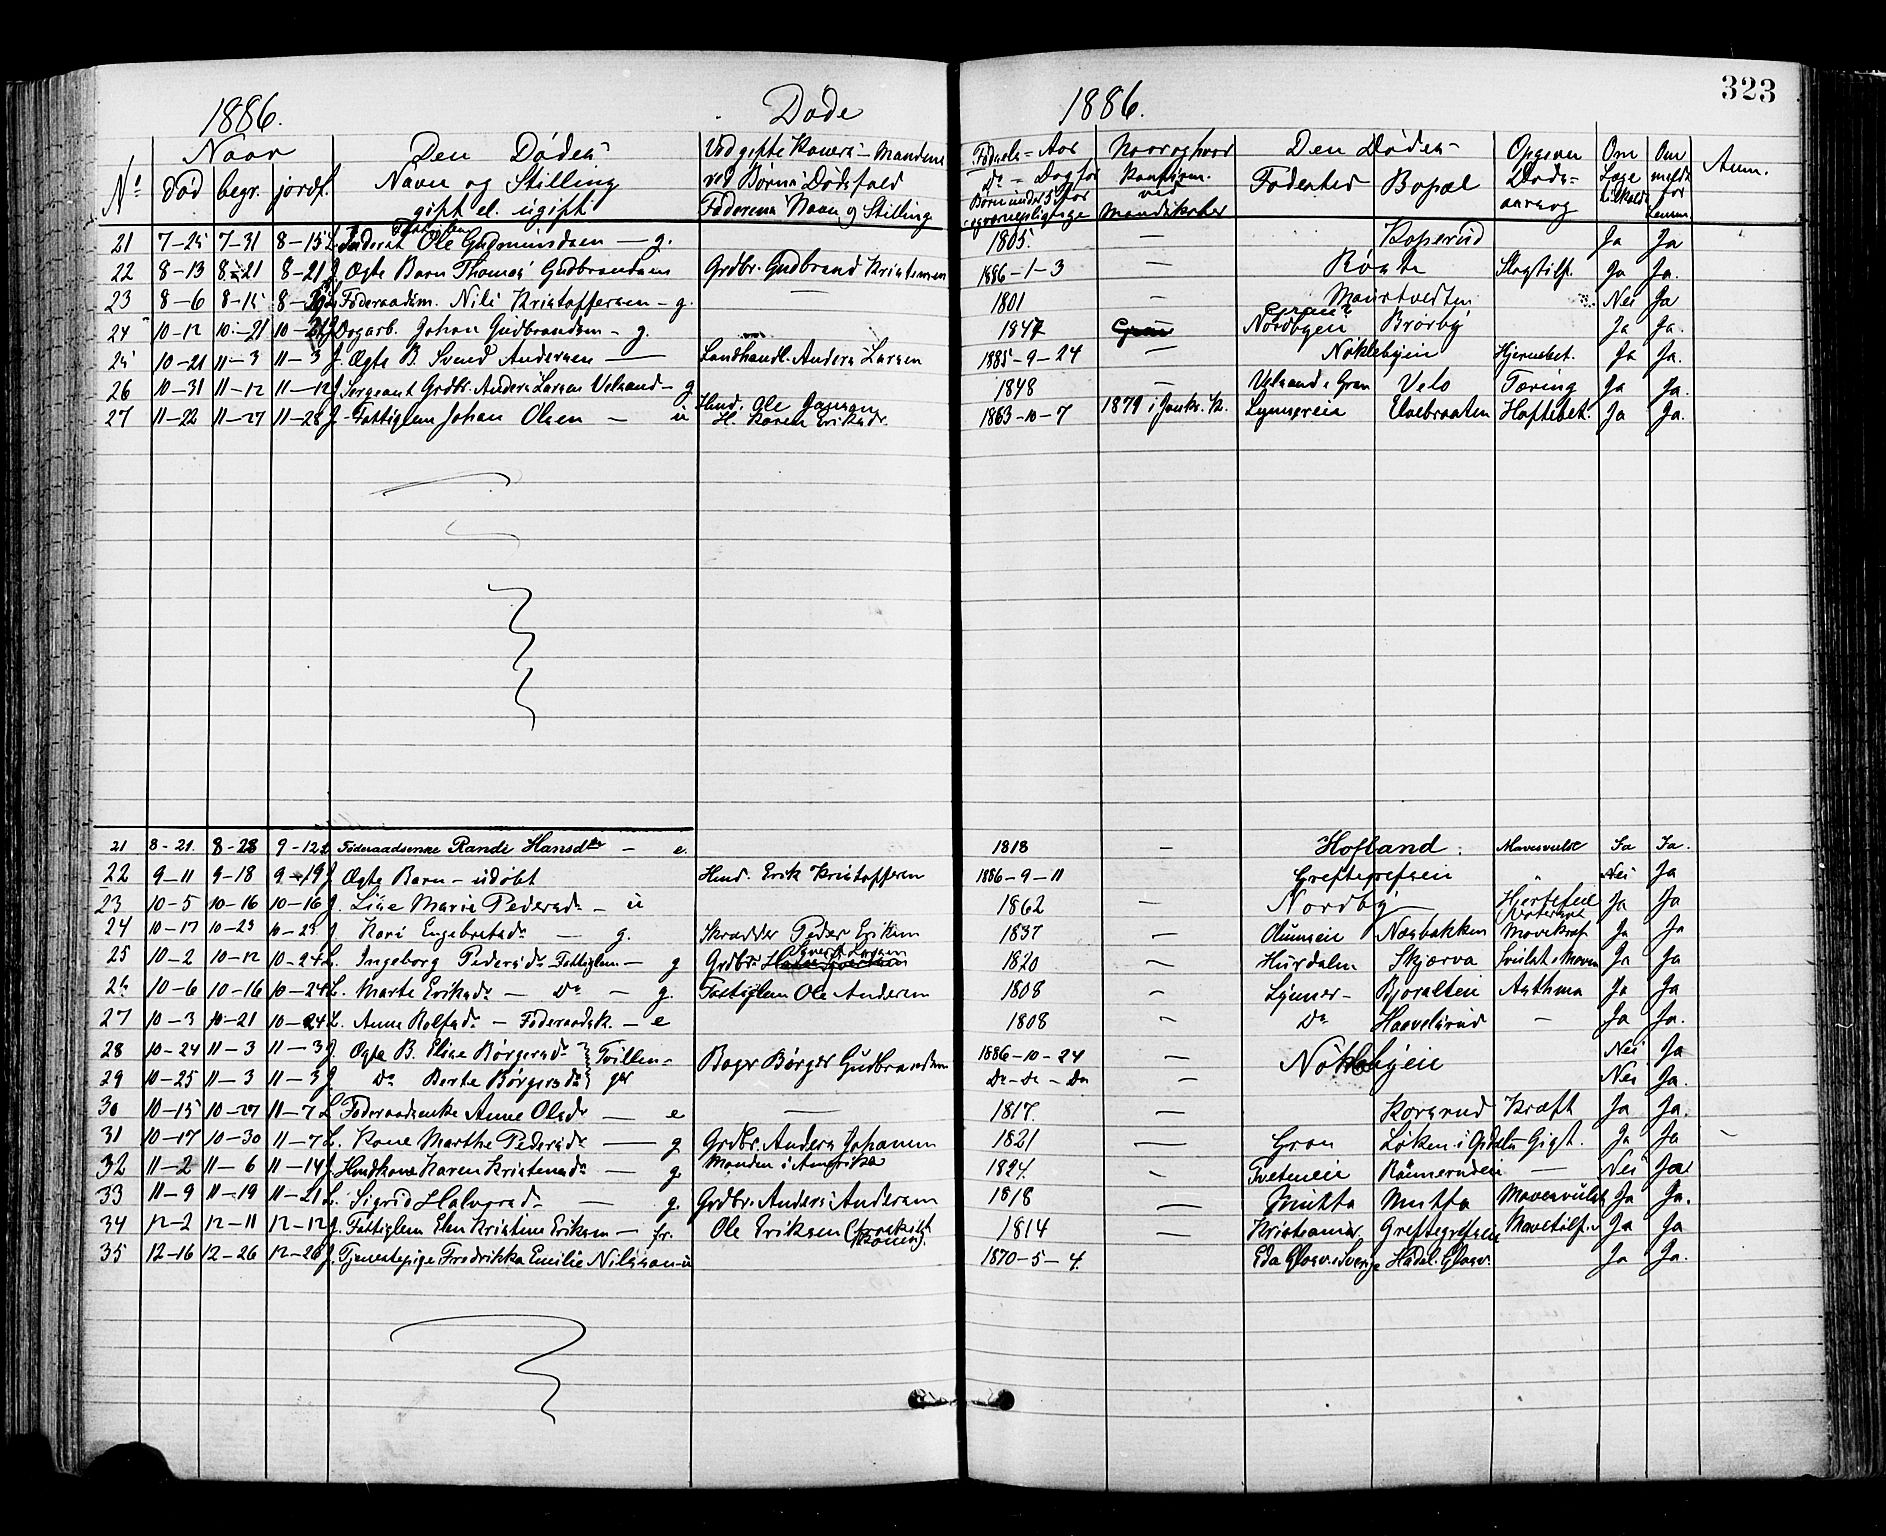 323
1886. Døde 1886.
No Naar død begr. jordf. Den Dødes Navn og Stilling gift el. ugift Ved gifte Koners Mandens ved Børns Dødsfald Faderens Navn og Stilling Fødsels-Aar Do - Dag for Børn under 5 Aar og værnepligtige Naar og hvor konfirm. ved Mandskaber Den Dødes Fødested Bopæl Opgiven Døds- aarsag Om Læge tilkaldt Om meldt for Lensm. Anm.
21 7-25 7-31 8-15 L. Føderaad Ole Gudmundsen — g. 1805. — Koperud Ja Ja
22 8-13 8-21 8-21 J. Ægte Barn Thomas Gudbrandsen Grdbr. Gudbrand Kristensen 1886-1-3 — Røste Slagtilf. Ja Ja.
23 8-6 8-15 Føderaadsm. Nils Kristoffersen - g. — 1801 — Nei Ja
24 10-12 10-21 10-21 J. Dagarb. Johan Gudbrandsen - g. 1847 Gran Nordbyen Brørby Ja Ja.
25 10-21 11-3 11-3 J. Ægte B. Svend Andersen — Landhandl. Anders Larsen 1885-9-24 — Nøklebyen Hjernebet. Ja Ja.
26 10-31 11-12 11-12 J. Sergeant Grdbr. Anders Larsen Velsand - g 1848 — Velsand i Gran Velo Tæring Ja Ja.
27 11-22 11-27 11-28 J. Fattiglem Johan Olsen — u Hmd. Ole Hansen H. Karen Eriksdr. 1863-10-7 1879 i Jevnk. K. Lynnereie Ulvebraaten Hoftebet. Ja Ja.
21 8-21. 8-28 9-12 L Føderaadsenke Randi Hansdtr — e. 1818 — Hofland. Mavesvulst Ja Ja.
22 9-11 9-18 9-19 J Ægte Barn - udøbt Hmd. Erik Kristoffersen 1886-9-11 Greftegrefseie " Nei Ja
23 10-5 10-16 10-16 J. Lise Marie Pedersdr - u 1862 — Nordby — Hjertefeil Ja Ja
24 10-17 10-23 10-23 J Kari Engebretsdr — g. Skrædder Peder Eriksen 1837 — Næsbakken Mavekræf. Ja Ja
25 10-2 10-12 10-24 L. Ingeborg Pedersdr Fattiglem — g Grdbr. Syvert Larsen 1820 — Hurdalen Skjærva Svulst i Maven Ja Ja
26 10-6 10-16 10-24 L. Marte Eriksdr — Do — g. Fattiglem Ole Andersen 1808 — Lynner- Bjoralten Asthma Ja Ja
27 10-3 10-21 10-24 L. Anne Rolfsdr - Føderaadsk. - e 1808 — Do Haavelsrud — Ja Ja.
28 10-24 11-3 11-3 J. Ægte B. Elise Børgersdr } Tvillin- Bager Børger Gudbrandsen 1886-10-24 — Nøklebyeie Nei Ja
29 10-25 11-3 11-3 J Do Berte Børgersdr } ger Do-Do-Do — Nei Ja.
30 10-15 10-27 11-7 L Føderaadsenke Anne Olsdr — e — 1817. — Korsrud Kræft Ja Ja.
31 10-17 10-30 11-7 L. Kone Marthe Pedersdr — g Grdbr. Anders Johansen 1821 — Gran Løken i Opdalen Gigt. Ja Ja
32 11-2 11-6 11-14 J. Hmdkone Karen Kristensdr — g Manden i Amerika 1824. — Tveteneie Rønnerudeie — Nei Ja
33 11-9 11-19 11-21 L. Sigrid Halvorsdr — g. Grdbr. Anders Andersen 1818 — Mutta Mutta Mavesvulst Ja Ja.
34 12-2 12-11 12-12 J. Fattiglem Elen Kristine Eriksen - fr. Ole Eriksen 1814 — Kristiania Greftegrefseie Ja Ja
35 12-16 12-26 12-26 J. Tjenestepige Fredrikka Emilie Nilsson - u 1870-5-4. Eda Glasv. i Sverige Hadel. Glasv. Ja Ja.